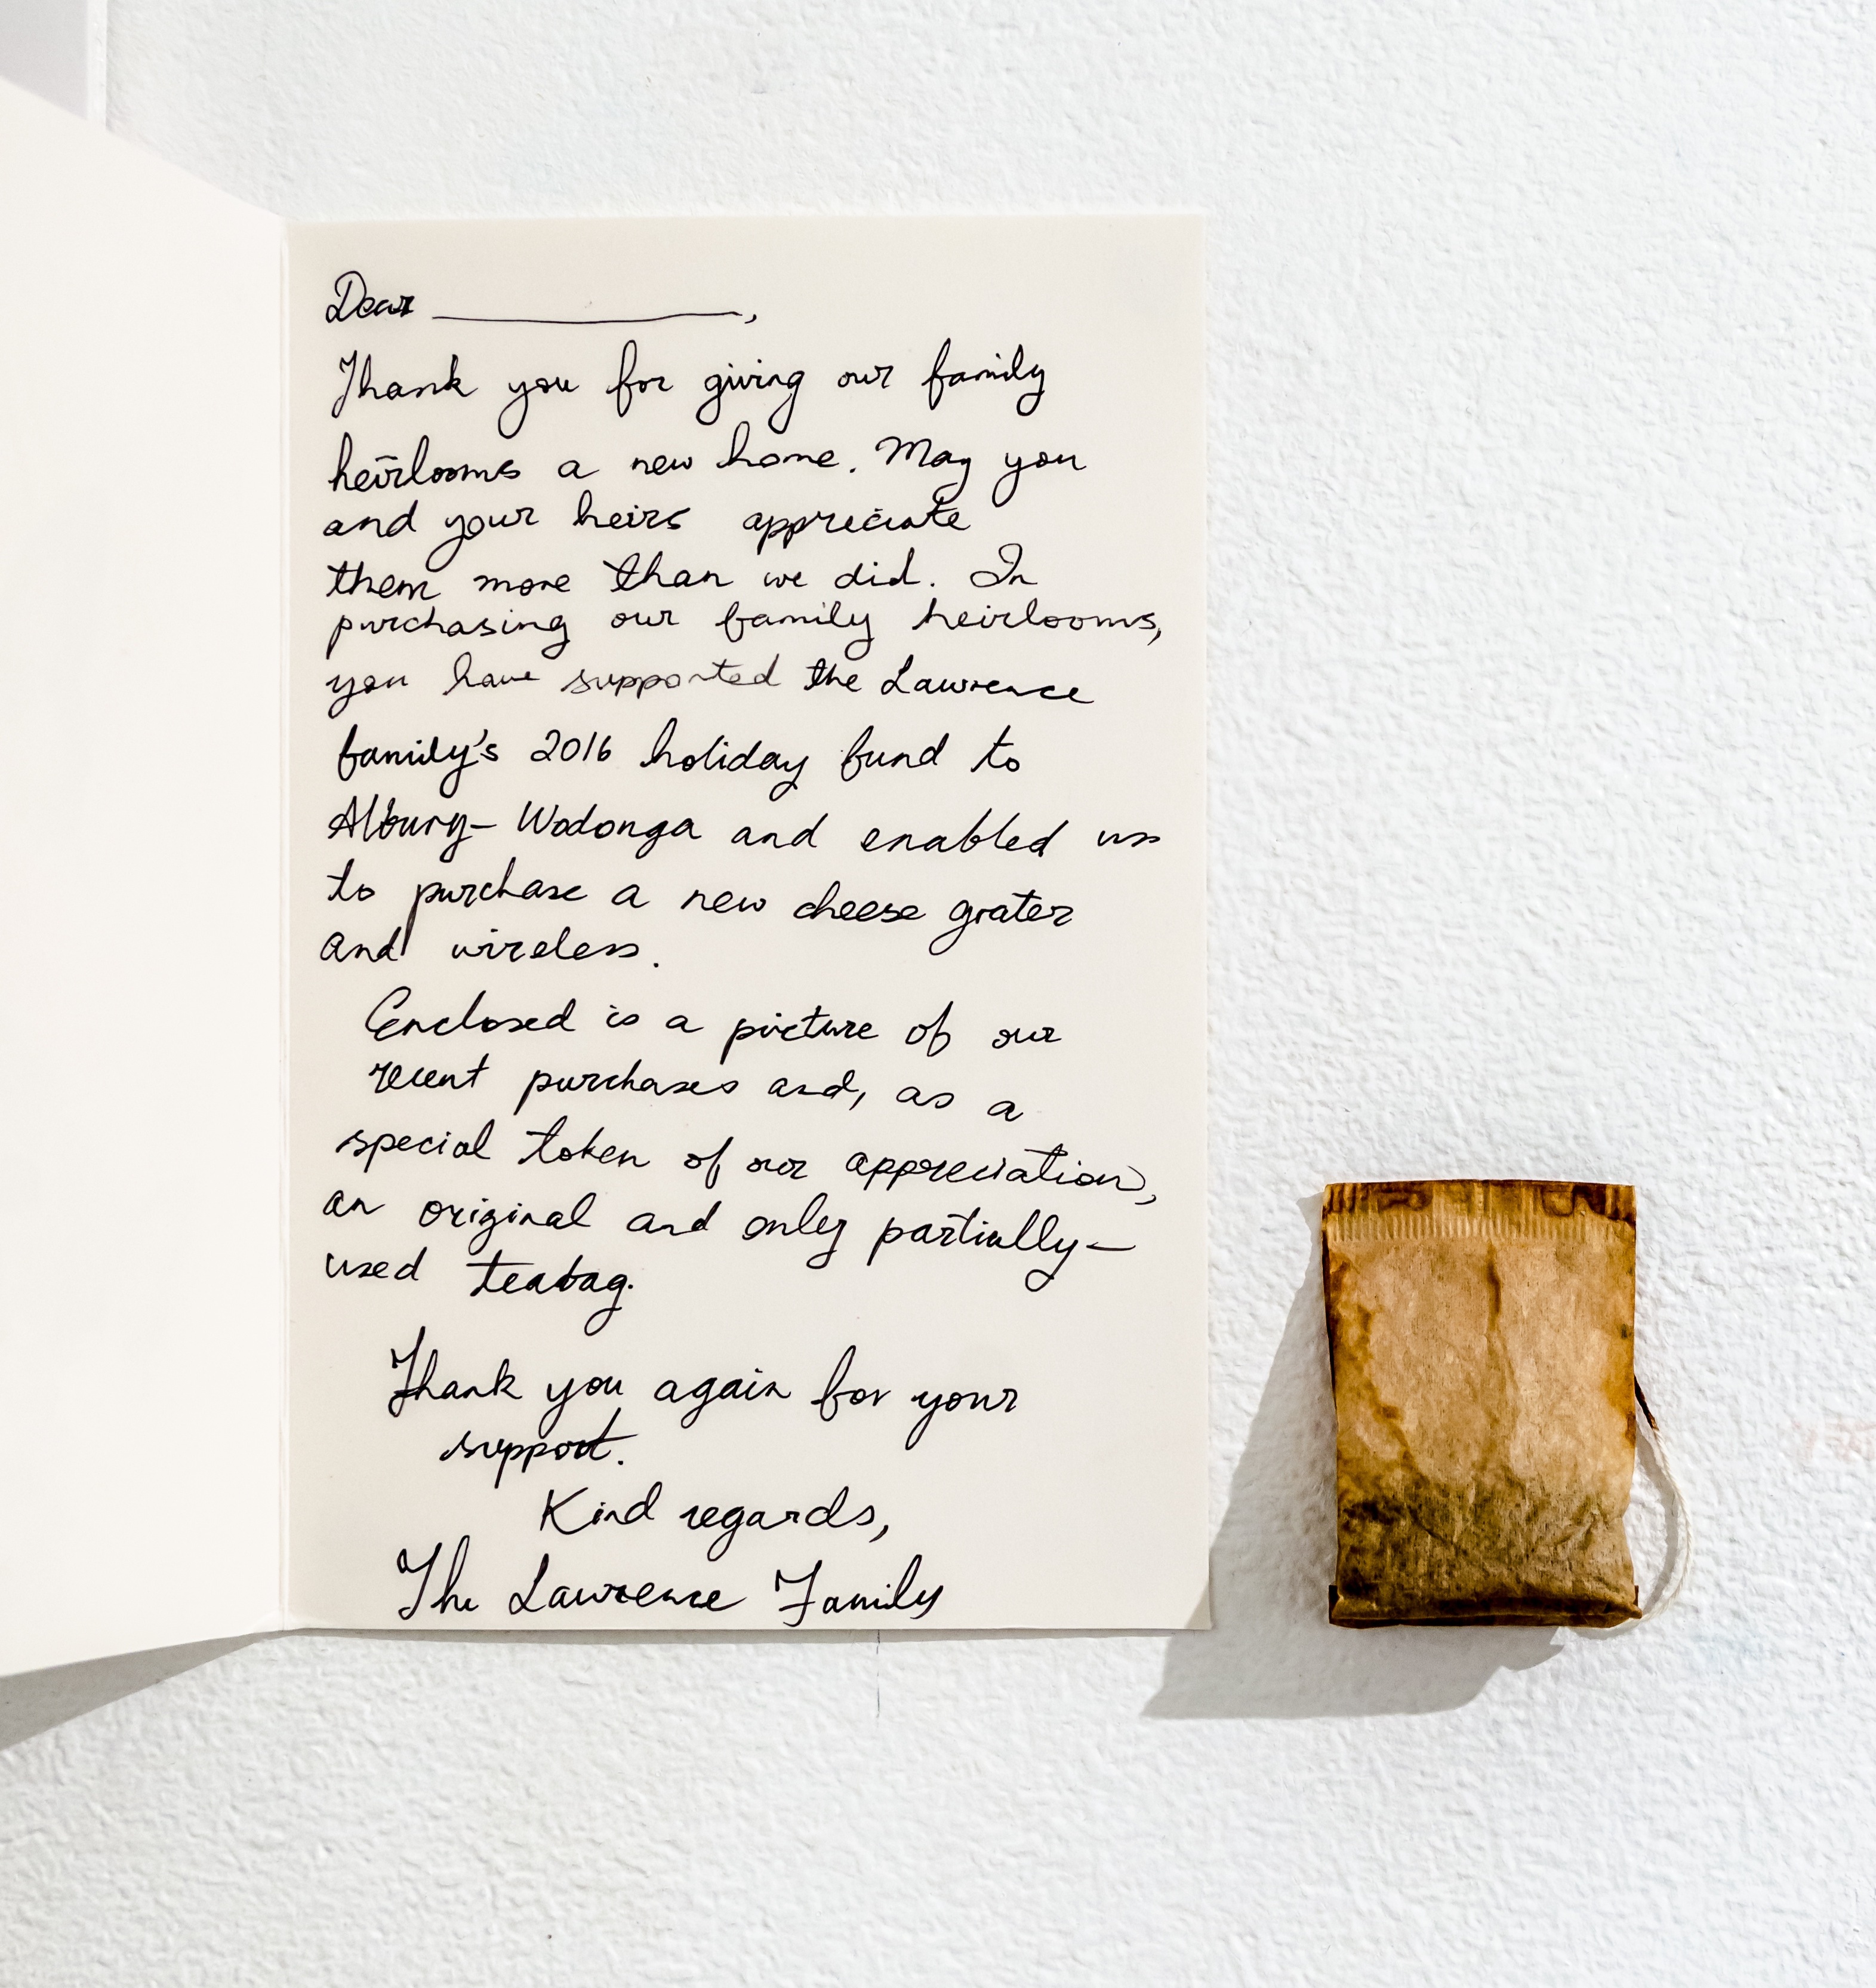 Dear ____________,
Thank you for giving our family
heirlooms a new home. May you
and your heirs appreciate
them more than we did. In
purchasing our family heirlooms,
you have supported the Lawrence
family's 2016 holiday fund to
Albury-Wodonga and enabled us
to purchase a new cheese grater
and wireless.
Enclosed is a picture of our
recent purchases and, as a
special token of our appreciation,
an original and only partially-
used teabag.
Thank you again for your
support.
Kind regards,
The Lawrence Family